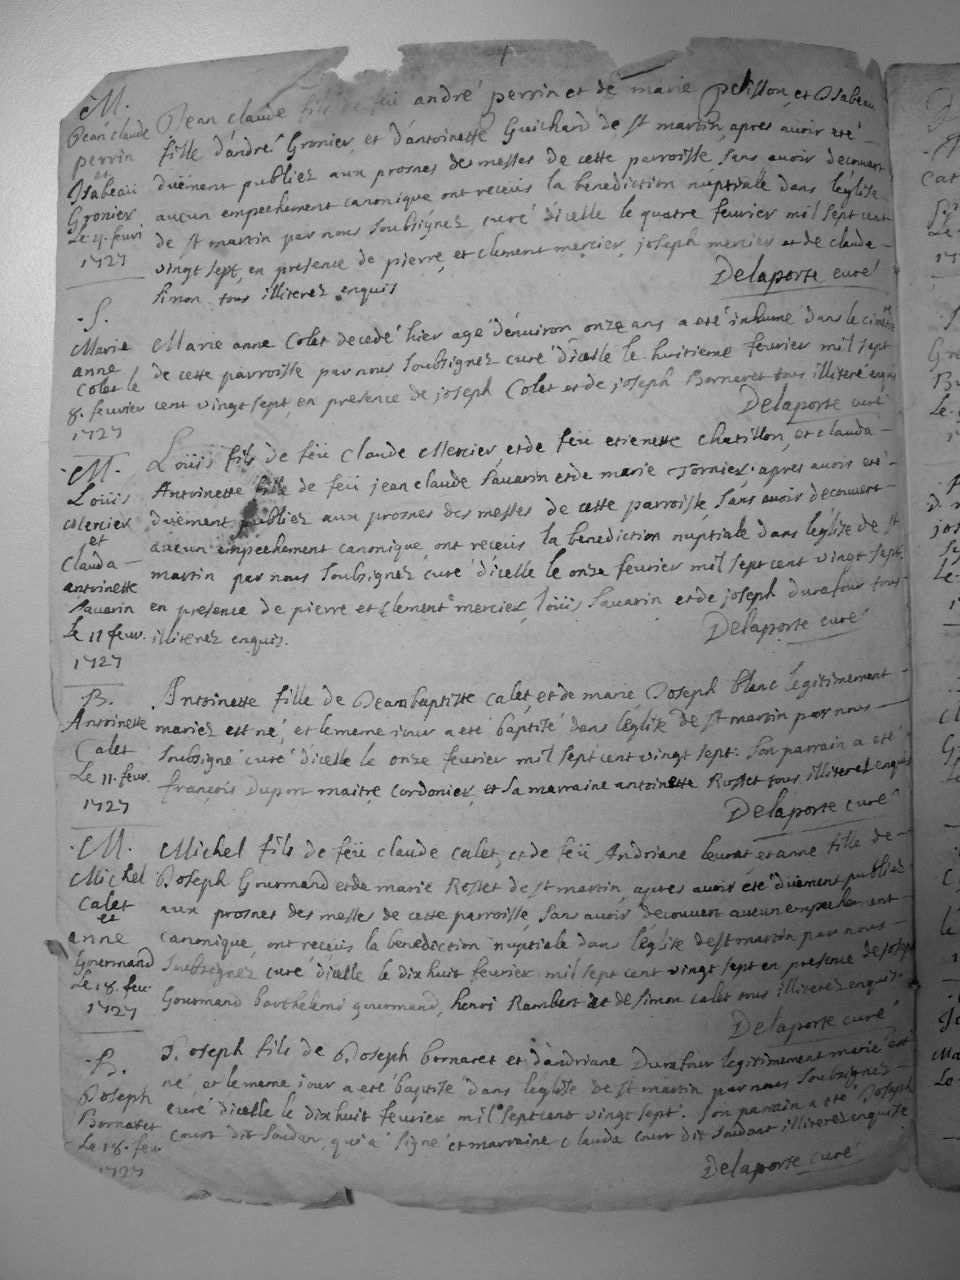 M.
Jean claude
perrin
et
Isabeau
Gronier
Le 4. feuri
1727
Jean claude fils de feü andré perrin et de marie petillon, et Isabeau
fille d'andré Gronier, et d'antoinette Guichard de st martin, apres auoir eté
duëment publiez aux prosnes des messes de cette parroisse, sans auoir decouuert
aucun empechement canonique ont receüs la benediction nuptialle dans l'église
de st martin par nous soubsignez curé d'icelle le quatre feurier mil sept cent
vingt sept, en presence de pierre, et clement mercier, joseph mercier et de claude
simon tous illiterez enquis
Delaporte curé
S.
Marie
anne
Colet le
8. feurier
1727
Marie anne Colet decedé hier agé d'enuiron onze ans a eté inhumé dans le
de cette parroisse par nous soubsignez curé d'icelle le huitieme feurier mil sept
cent vingt sept, en presence de joseph Colet et de joseph Bornaret tous illiteré
Delaporte curé
M.
Loüis
Mercier
et
Clauda
antoinette
sauarin
Le 11 feur.
1727
Loüis fils de feü claude Mercier, et de feü etienette chatillon, et clauda
Antoinette fille de feü jean claude sauarin et de marie Tornier. apres auoir eté
duëment publiez aux prosnes des messes de cette parroisse, sans auoir decouuert
aucun empechement canonique, ont receüs la benediction nuptiale dans l'église de st
martin par nous soubsignez curé d'icelle le onze feurier mil sept cent vingt sept.
en presence de pierre et clement mercier, loüis sauarin et de joseph durafour tous
illiterez enquis.
Delaporte curé
B.
Antoinette
Calet
Le 11. feur.
1727
Antoinette fille de Jean baptiste calet, et de marie Joseph blanc legitimement
mariez est né, et le meme jour a eté baptisé dans l'église de st martin par nous
soubsigné curé d'icelle le onze feurier mil sept cent vingt sept. son parrain a eté
françois Dupon maitre cordonier, et sa marraine antoinette Rosset tous illiterez enquis
Delaporte curé
M.
Michel
Calet
et
anne
Gourmand
Le 18 feu.
1727
Michel fils de feü claude calet, et de feü Andriane leurat et anne fille de
Joseph Gourmand et de marie Rosset de st martin, apres auoir eté duëment publiez
aux prosnes des messes de cette parroisse, sans auoir decouuert aucun empechement
canonique, ont receüs la benediction nuptiale dans l'église de st martin par nous
soubsignez curé d'icelle le dixhuit feurier mil sept cent vingt sept en presence de joseph
Gourmand barthelemi gourmand, henri Rambert et de simon calet tous illiterez enquis.
Delaporte curé
B.
Joseph
Bornaret
Le 18. feu.
1727
Joseph fils de Joseph bornaret et d'andriane Durafour legitimement marié est
né, et le meme jour a eté baptisé dans l'église de st martin par nous soubsignez
curé d'icelle le dixhuit feurier mil sept cent vingt sept. son parrain a eté Joseph
court dit soudan, qui a signé et marraine clauda court dit soudant illiterez enquise
Delaporte curé